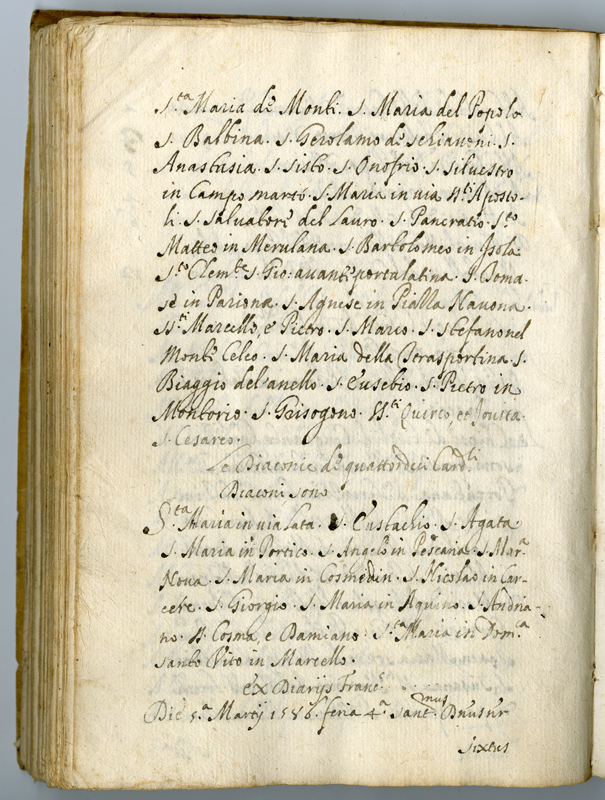 S.ta Maria de Monti. S. Maria del Popolo
S. Balbina. S. Gerolamo de schiavoni. S.
Anastasia. S. Sisto. S. Onofrio. S. Silvestro
in Campo marso. S. Maria in via SS.ti Aposto-
li. S. Salvatore del Lauro. S. Pancratio. S.to
Matteo in Merulana. S. Bartolomeo in Isola
S.to Clem.te S. Gio: avanti porta latina. S. Toma-
so in Pariona. S. Agnese in Piazza Navona.
SS.ti Marcello, e Pietro. S. Marco. S. Stefano nel
Monte Celeo. S. Maria della Traspontina. S.
Biaggio del anello. S. Eusebio. S. Pietro in
Montorio. S. Grisogono. SS.ti Quirco, et Joutta.
S. Cesareo.
Le Diaconie de quattordeci Card.li
Diaconi sono
S.ta Maria in via Lata. S. Eustachio. S. Agata
S. Maria in Portico. S. Angelo in Pescaria. S. Mar.a
Nova. S. Maria in Cosmedin. S. Nicolao in Car-
cere. S. Giorgio. S. Maria in Aquino. S. Andria-
no. SS. Cosma, e Damiano. S.ta Maria in Dom.ca
santo Vito in Marcello.
ex Diarijs Franc.
Die 5.a Martij 1586. feria 4.a sanct.mus Dnus nr
Sixtus